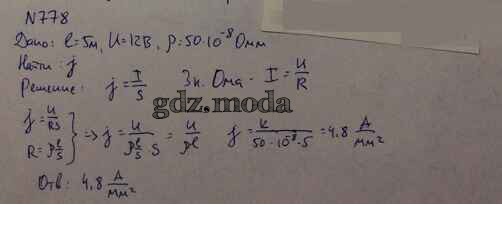 N778
Дано: l=5м, U=12В, ρ=50·10⁻⁸Омм
Найти: j
Решение: j=I/S Зн. Ома - I=U/R
gdz.moda
j=U/RS
R=ρl/S } => j=U/(ρl/S · S) = U/ρl j=U/(50·10⁻⁸·5)=4,8 А/мм²
Отв: 4,8 А/мм²